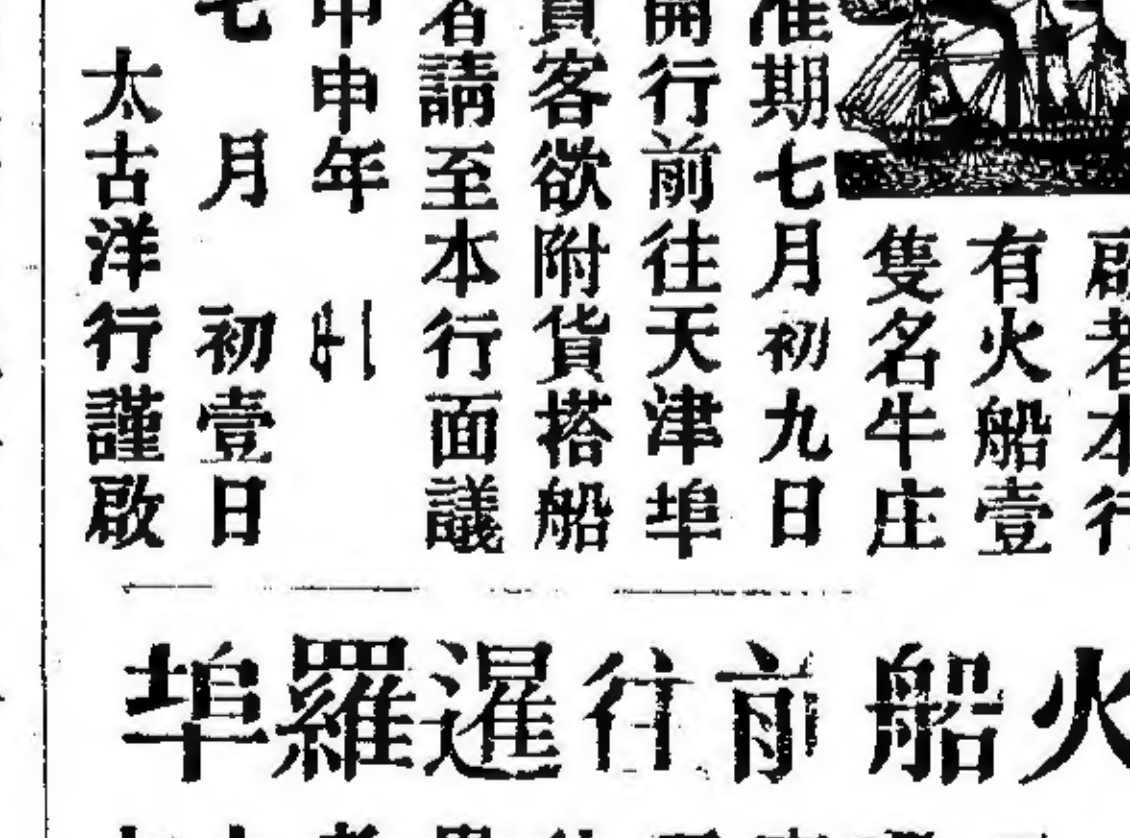 啟者本行
有火船壹
隻名牛庄
准期七月初九日
開行前往天津埠
貨客欲附貨搭船
者請至本行面議
甲申年
七月初壹日
太古洋行謹啟
火船前往暹羅埠